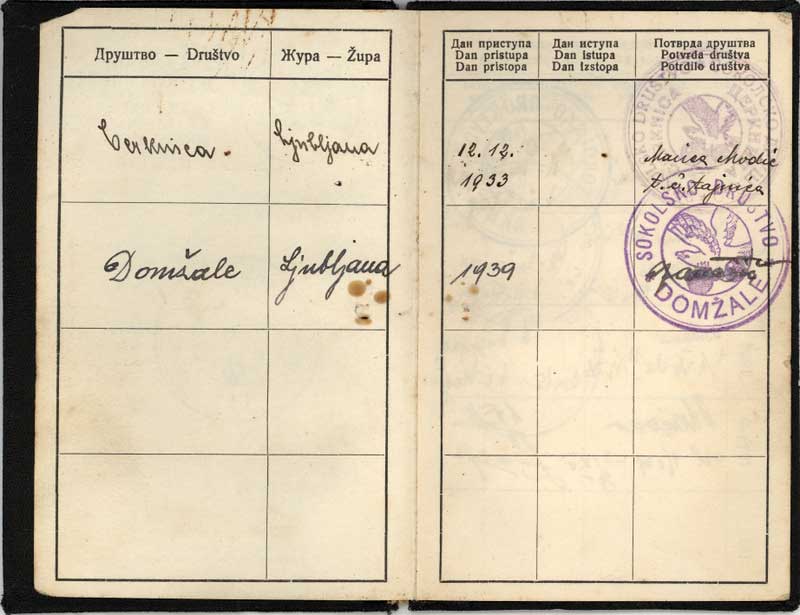 Друштво — Društvo
Жупа — Župa
Дан приступа
Dan pristupa
Dan pristopa
Дан иступа
Dan istupa
Dan izstopa
Потврда друштва
Potvrda društva
Potrdilo društva
Cerknica
Ljubljana
12. 12.
1933
Marica Modic
t. č. tajnica
Domžale
Ljubljana
1939
SOKOLSKO DRUŠTVO
DOMŽALE